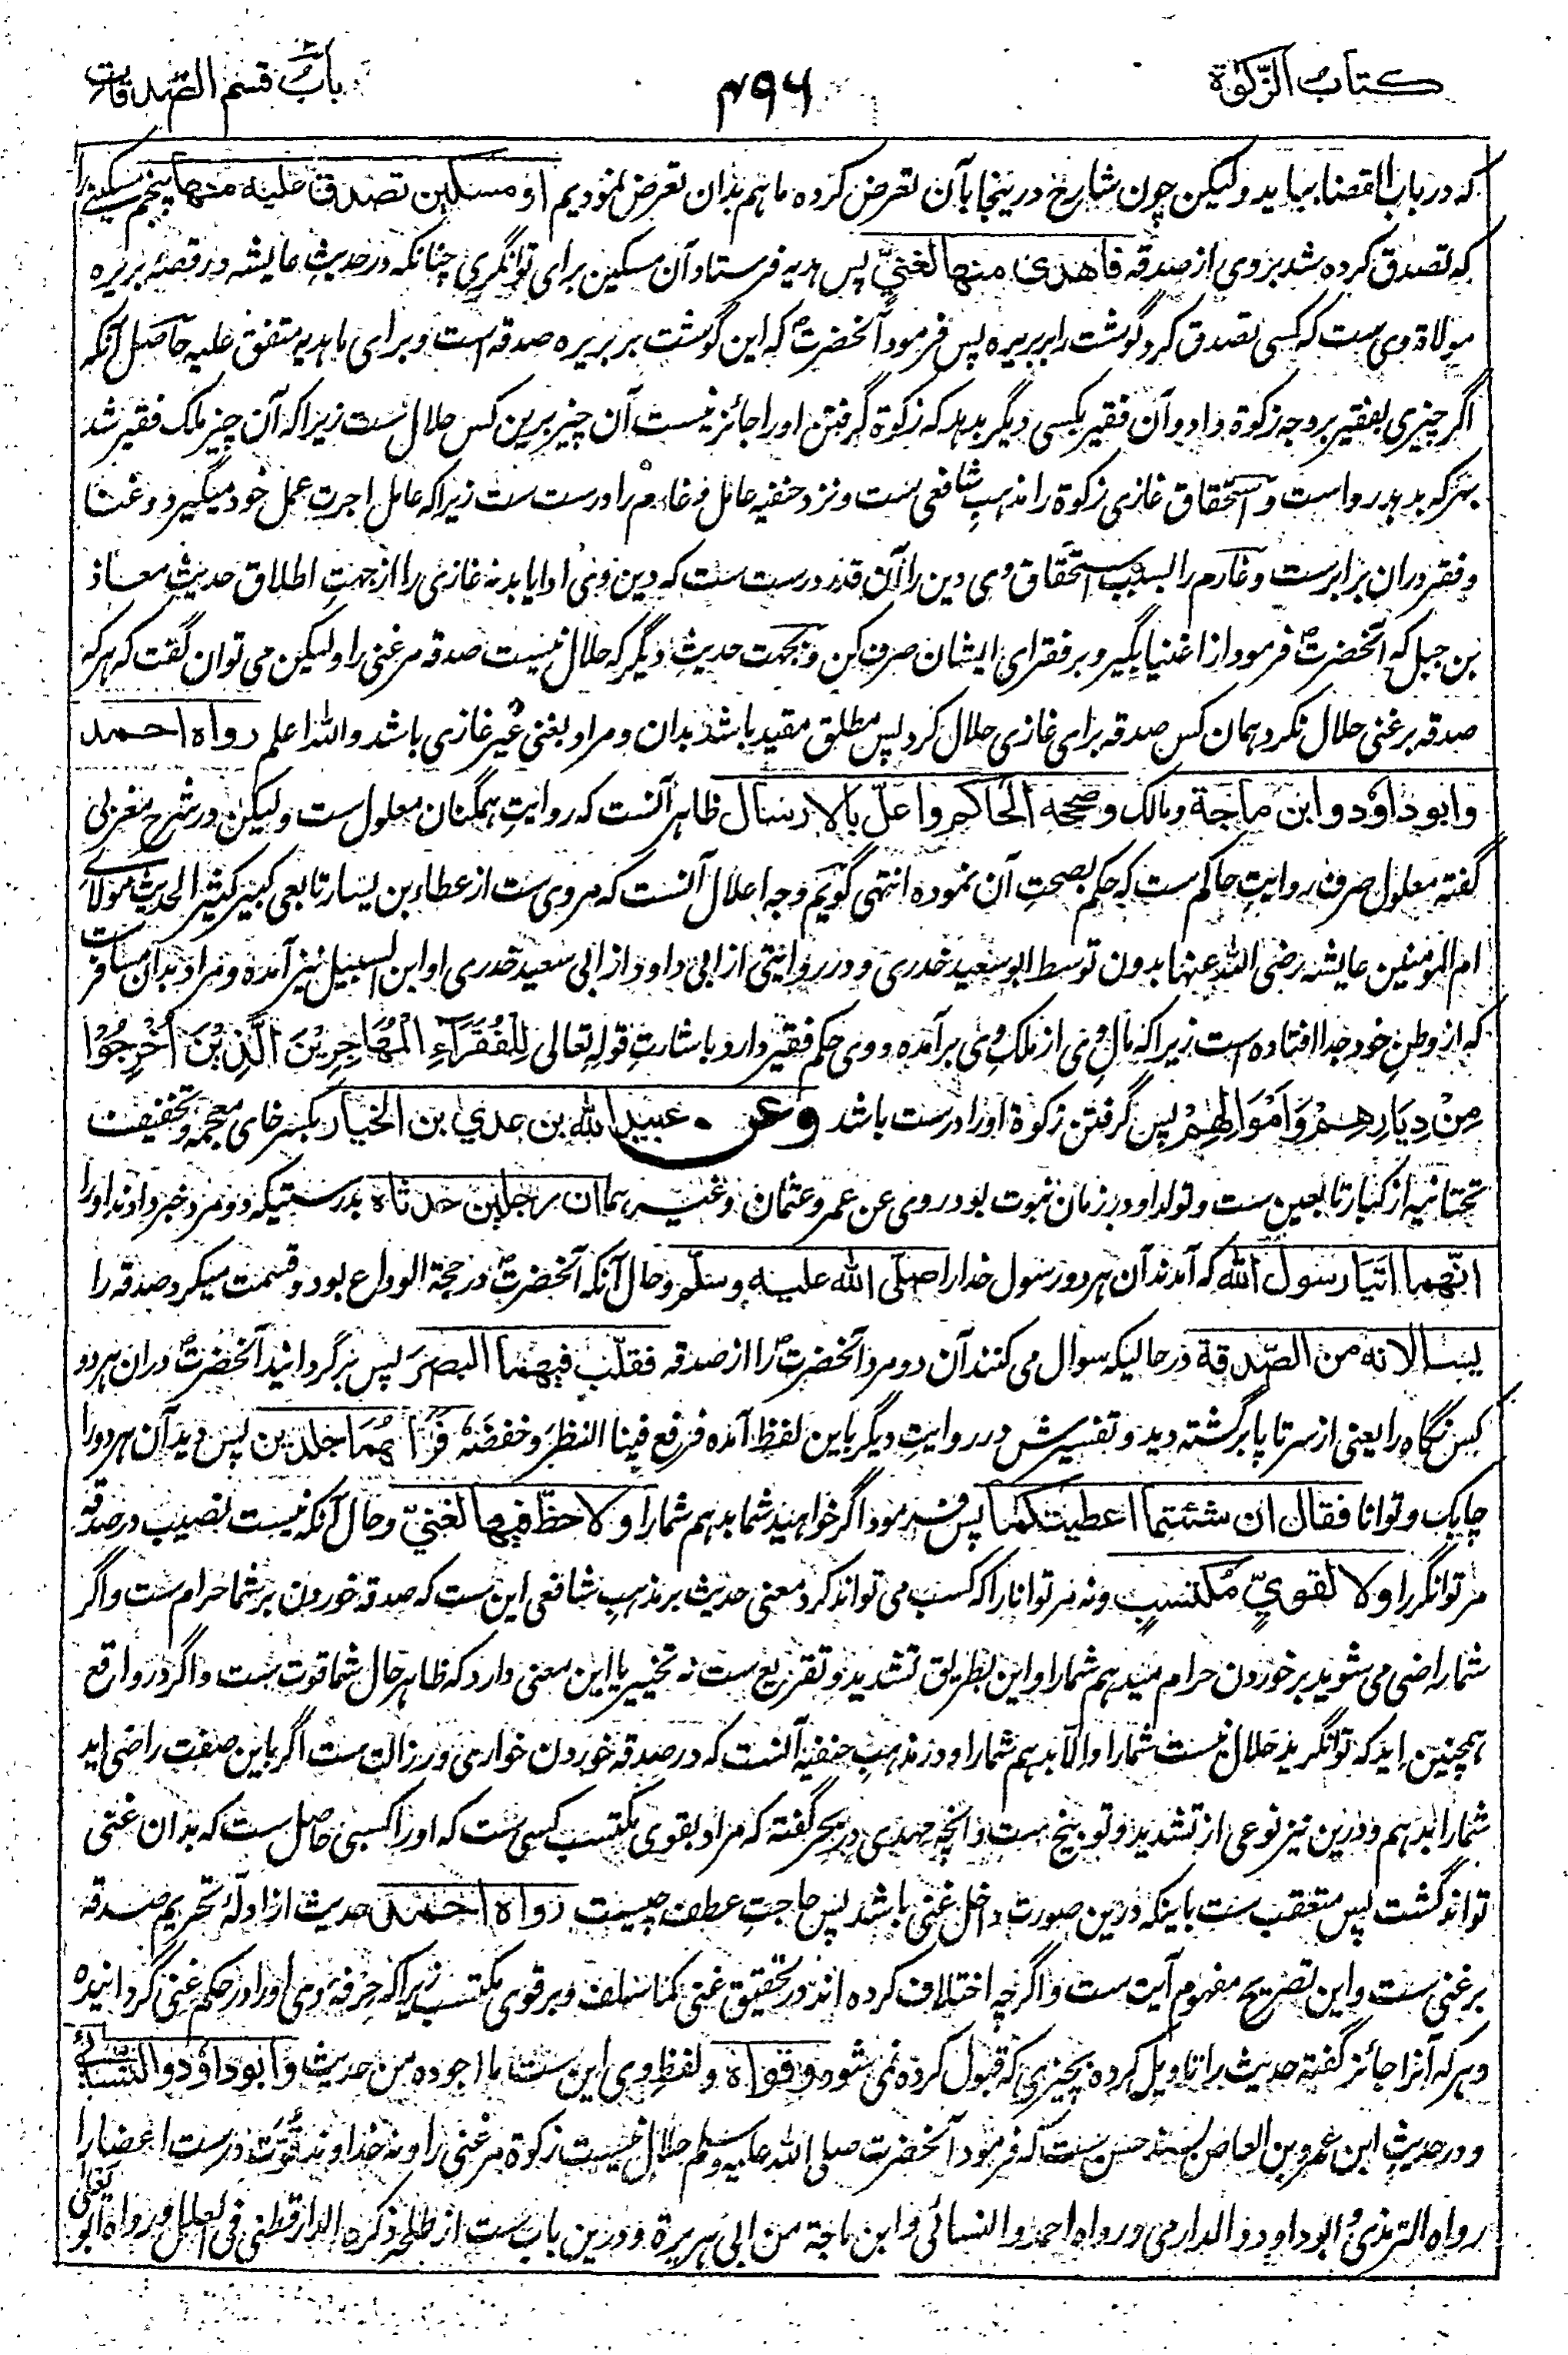 کتاب الزکوٰة ۴۹۶ باب قسم الصدقات
که در باب القضا بیاید ولیکن چون شارح درینجا بآن تعرض کرده ما هم بدان تعرض نمودیم او مسکین تصدق علیه منها پنجم مسکینے را
که تصدق کرده شد بروی از صدقه فاهدی منها لغنیّ پس هدیه فرستاد آن مسکین برای توانگری چنانکه در حدیث عایشه در قصهٔ بریره
مولاة وی ست که کسی تصدق کرد گوشت را بر بریره پس فرمود آنحضرتؐ که این گوشت بر بریره صدقه است و برای ما هدیه متفق علیه حاصل آنکه
اگر چیزی بفقیر بر وجه زکوة داد و آن فقیر بکسی دیگر بدهد که زکوة گرفتن او را جائز نیست آن چیز برین کس حلال ست زیرا که آن چیز ملک فقیر شد
بهر که بدهد رواست و استحقاق غازی زکوة را مذهب شافعی ست و نزد حنفیه عامل و غارم را درست ست زیرا که عامل اجرت عمل خود میگیرد و غنا
و فقر دران برابرست و غارم را بسبب استحقاق وی دین را آن قدر درست ست که دین وی ادا یابد نه غازی را از جهت اطلاق حدیث معاذ
بن جبل که آنحضرتؐ فرمود از اغنیا بگیر و بر فقرای ایشان صرف کن و بجهت حدیث دیگر که حلال نیست صدقه مر غنی را ولیکن می توان گفت که هر که
صدقه بر غنی حلال نکرد همان کس صدقه برای غازی حلال کرد پس مطلق مقید باشد بدان و مراد بغنی غیر غازی باشد والله اعلم رواه احمد
وابو داؤد وابن ماجة ومالک وصححه الحاکم واعلّ بالارسال ظاهر آنست که روایت همگنان معلول ست ولیکن در شرح مغربی
گفته معلول صرف روایت حاکم ست که حکم بصحت آن نموده انتهی گویم وجه اعلال آنست که مروی ست از عطاء بن یسار تابعی کبیر کثیر الحدیث مولای
ام المومنین عایشه رضی الله عنها بدون توسط ابو سعید خدری و در روایتی از ابی داود از ابی سعید خدری او ابن السبیل نیز آمده و مراد بدان مسافرت
که از وطن خود جدا افتاده است زیرا که مال وی از ملک وی برآمده و وی حکم فقیر دارد باشارت قوله تعالی لِلْفُقَرَآءِ الْمُهَاجِرِیْنَ الَّذِیْنَ اُخْرِجُوْا
مِنْ دِیَارِهِمْ وَاَمْوَالِهِمْ پس گرفتن زکوة او را درست باشد وعن ۰ عبید الله بن عدی بن الخیار بکسر خای معجمه و تخفیف
تحتانیه از کبار تابعین ست و تولد او در زمان نبوت بود روی عن عمر و عثمان وغیرهما ان رجلین حدثاه بدرستیکه دو مرد خبر دادند او را
انّهما اتیا رسول الله که آمدند آن هر دو رسول خدا را صلی الله علیه وسلّم وحال آنکه آنحضرتؐ در حجة الوداع بود و قسمت میکرد صدقه را
یسالانه من الصّدقة در حالیکه سوال می کنند آن دو مرد آنحضرتؐ را از صدقه فقلّب فیهما البصر پس برگردانید آنحضرتؐ دران هر دو
کس نگاه را یعنی از سر تا پا برگشته دید و تفسیرش در روایت دیگر باین لفظ آمده فرفع فینا النظر وخفضه فراهما جلدین پس دید آن هر دو را
چابک و توانا فقال ان شئتما اعطیتکما پس فرمود اگر خواهید شما بدهم شما را ولا حظّ فیها لغنیّ وحال آنکه نیست نصیب در صدقه
مر توانگر را ولا لقویٍّ مُکتسبٍ و نه مر توانا را که کسب می تواند کرد معنی حدیث بر مذهب شافعی این ست که صدقه خوردن بر شما حرام ست و اگر
شما راضی می شوید بر خوردن حرام میدهم شما را و این بطریق تشدید و تقریع ست نه تخییر یا این معنی دارد که ظاهر حال شما قوت ست و اگر در واقع
همچنین اید که توانگرید حلال نیست شما را و الا بدهم شما را و در مذهب حنفیه آنست که در صدقه خوردن خواری و رزالت ست اگر باین صفت راضی اید
شما را بدهم و درین نیز نوعی از تشدید و توبیخ ست و انچه مهدی در بحر گفته که مراد بقوی مکتسب کسی ست که او را کسبی حاصل ست که بدان غنی
تواند گشت پس متعقب ست باینکه درین صورت داخل غنی باشد پس حاجت عطف چیست رواه احمد حدیث از ادلّهٔ تحریم صدقه
بر غنی ست و این تصریح مفهوم آیت ست و اگرچه اختلاف کرده اند در تحقیق غنی کما سلف و بر قوی مکتسب زیرا که حرفهٔ وی او را در حکم غنی گردانیده
و هر که آنرا جائز گفته حدیث را تاویل کرده بچیزی که قبول کرده نمی شود وقواه و لفظ وی این ست ما اجوده من حدیث وابو داؤد والنسائی
و در حدیث ابن عمرو بن العاص بسند حسن ست که فرمود آنحضرت صلی الله علیه وسلم حلال نیست زکوة مر غنی را و نه خداوند قوّت درست اعضا را
رواه الترمذی و ابو داود و الدارمی و رواه احمد و النسائی و ابن ماجة من ابی هریرة و درین باب ست از طلحه ذکره الدارقطنی فی العلل و رواه ابو یعلی